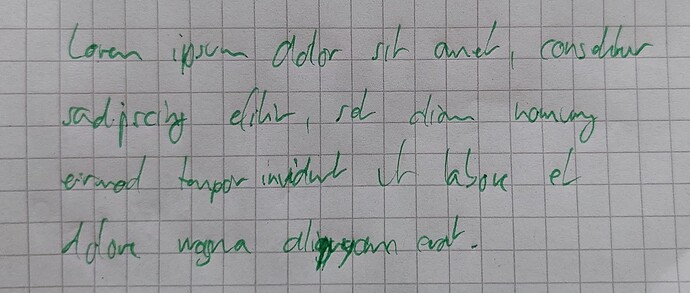 Lorem ipsum dolor sit amet, consetetur
sadipscing elitr, sed diam nonumy
eirmod tempor invidunt ut labore et
dolore magna aliquyam erat.